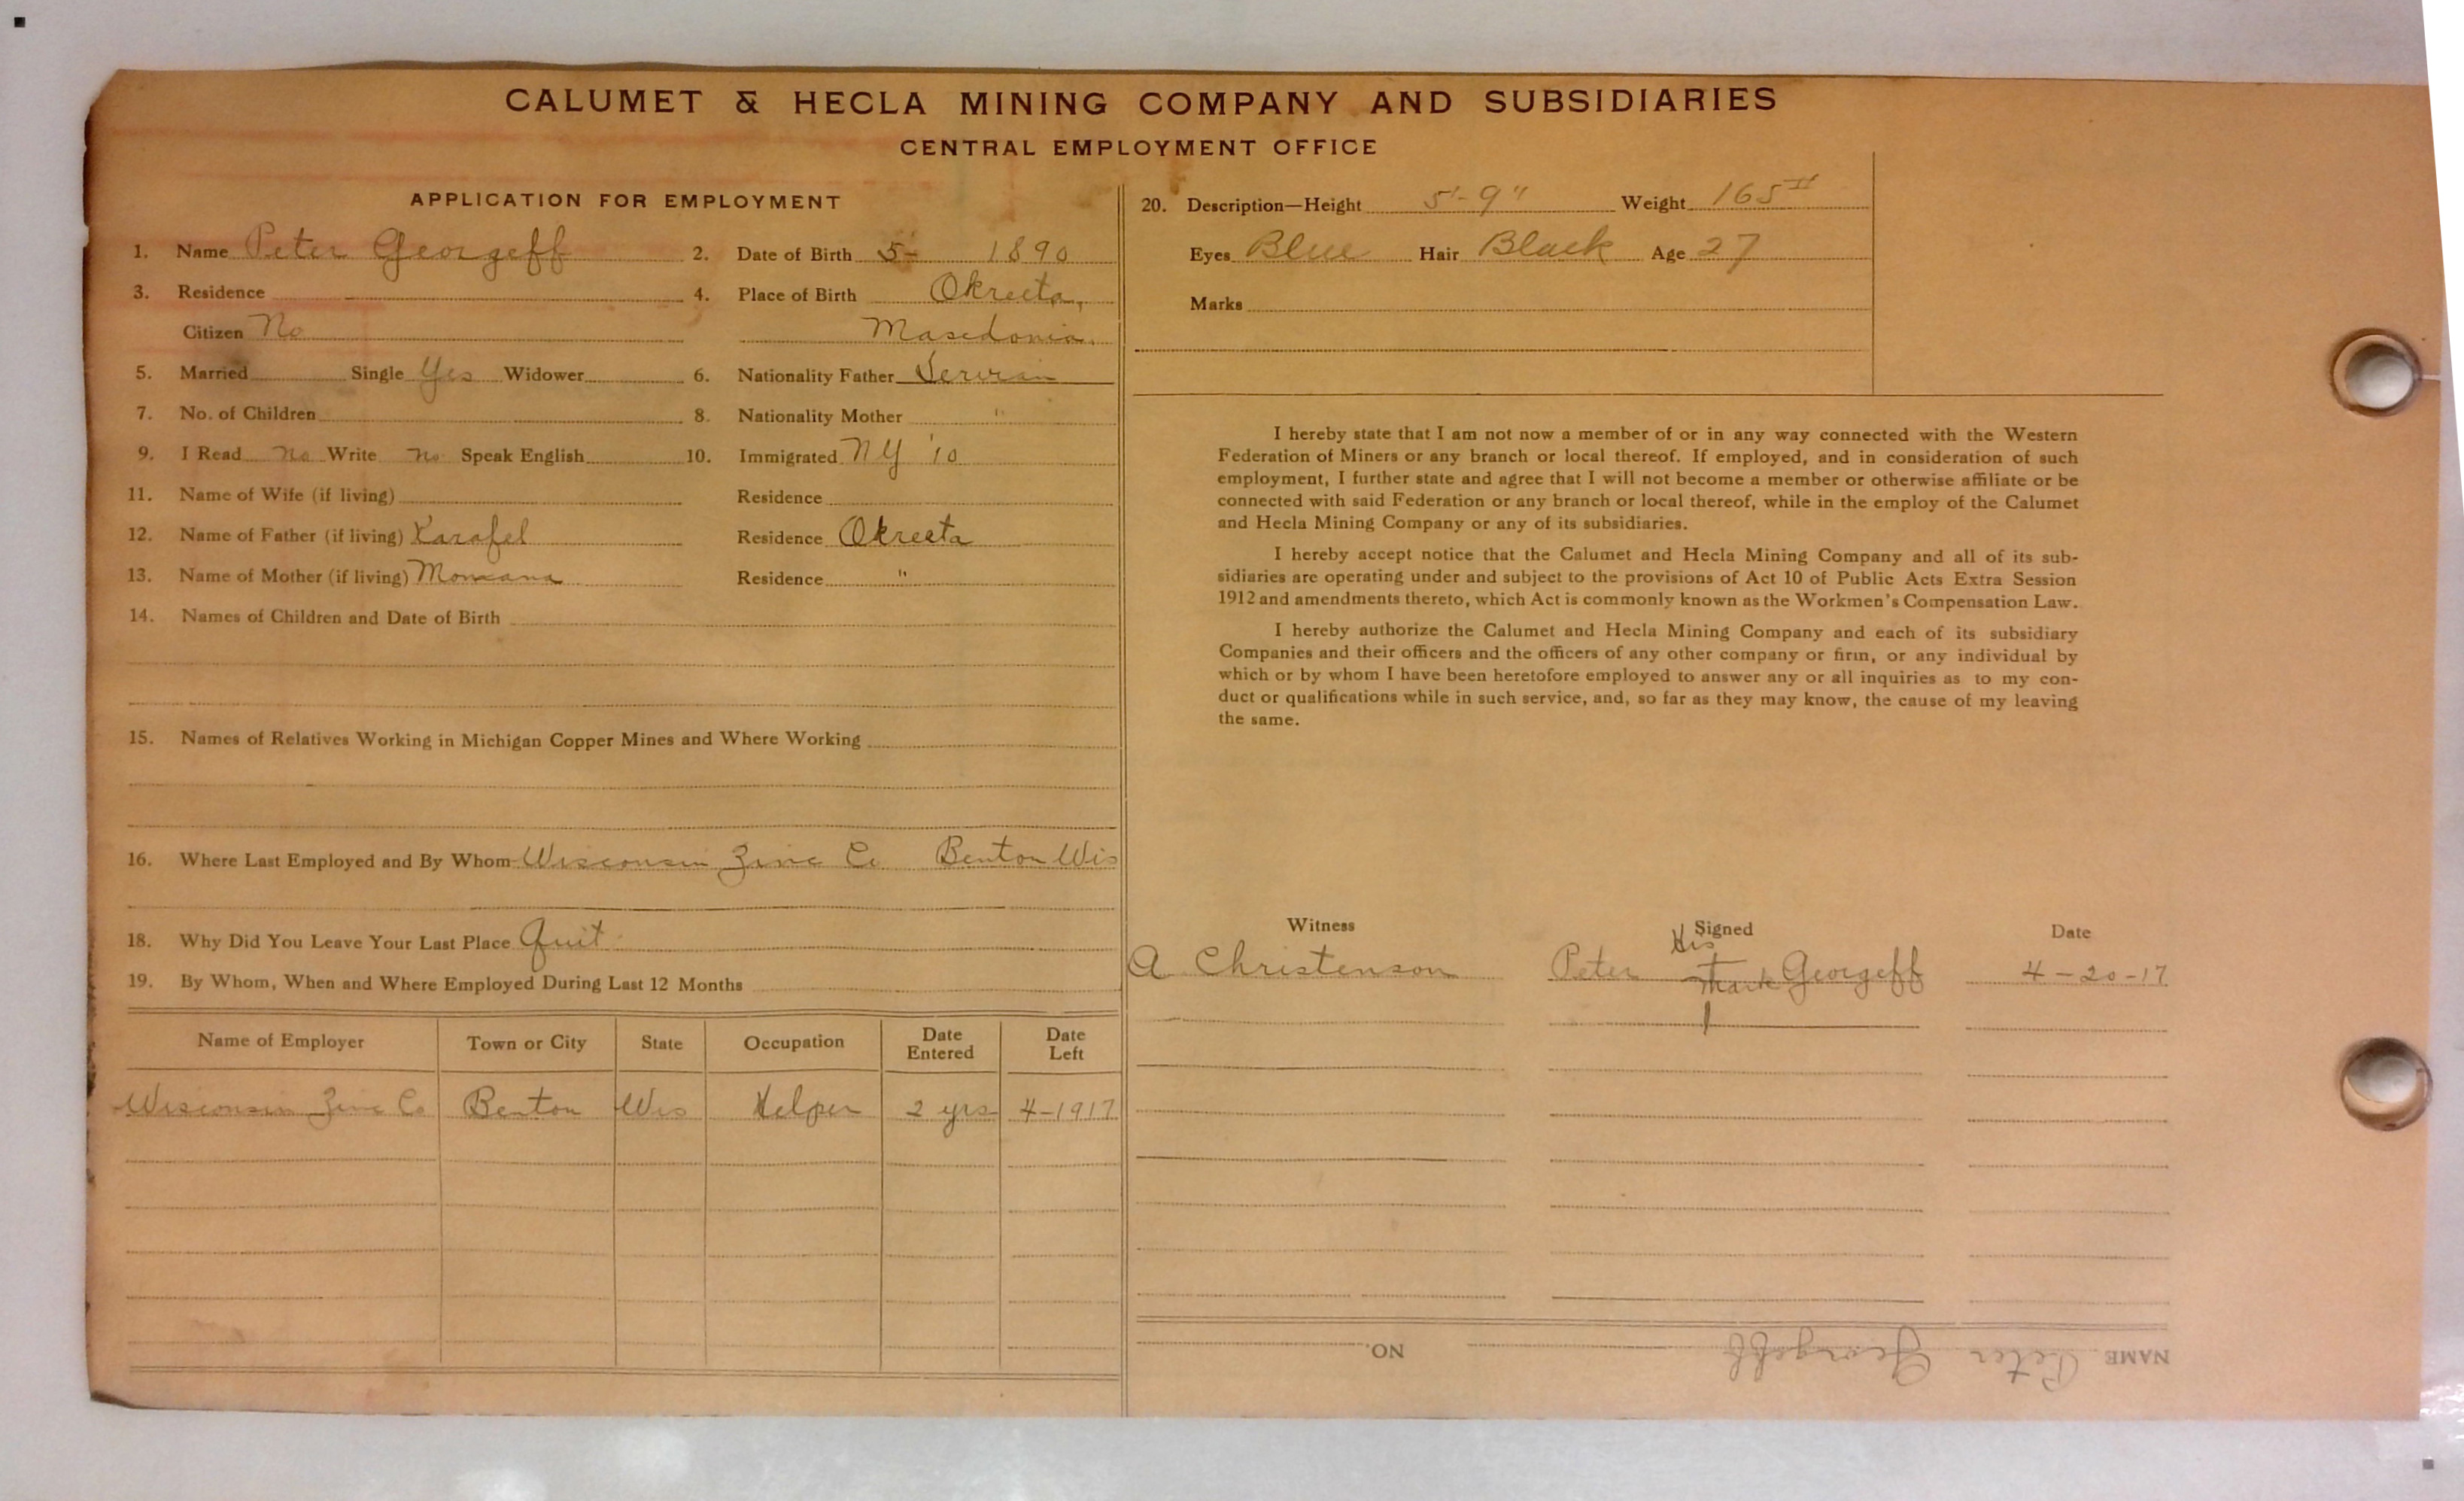 CALUMET & HECLA MINING COMPANY AND SUBSIDIARIES
CENTRAL EMPLOYMENT OFFICE
APPLICATION FOR EMPLOYMENT
1. Name Peter Georgeff 2. Date of Birth 5- 1890
3. Residence 4. Place of Birth Okreeta,
Citizen No Masedonia.
5. Married Single Yes Widower 6. Nationality Father Servian
7. No. of Children 8. Nationality Mother "
9. I Read No Write No Speak English 10. Immigrated NY '10
11. Name of Wife (if living) Residence
12. Name of Father (if living) Karafel Residence Okreeta
13. Name of Mother (if living) Residence "
14. Names of Children and Date of Birth
15. Names of Relatives Working in Michigan Copper Mines and Where Working
16. Where Last Employed and By Whom Wisconsin Zinc Co Benton Wis
18. Why Did You Leave Your Last Place Quit
19. By Whom, When and Where Employed During Last 12 Months
Name of Employer Town or City State Occupation Date Entered Date Left
Wisconsin Zinc Co Benton Wis Helper 2 yrs 4-1917
20. Description—Height 5'-9" Weight 165
Eyes Blue Hair Black Age 27
Marks
I hereby state that I am not now a member of or in any way connected with the Western
Federation of Miners or any branch or local thereof. If employed, and in consideration of such
employment, I further state and agree that I will not become a member or otherwise affiliate or be
connected with said Federation or any branch or local thereof, while in the employ of the Calumet
and Hecla Mining Company or any of its subsidiaries.
I hereby accept notice that the Calumet and Hecla Mining Company and all of its sub-
sidiaries are operating under and subject to the provisions of Act 10 of Public Acts Extra Session
1912 and amendments thereto, which Act is commonly known as the Workmen's Compensation Law.
I hereby authorize the Calumet and Hecla Mining Company and each of its subsidiary
Companies and their officers and the officers of any other company or firm, or any individual by
which or by whom I have been heretofore employed to answer any or all inquiries as to my con-
duct or qualifications while in such service, and, so far as they may know, the cause of my leaving
the same.
Witness Signed Date
A Christenson Peter His Mark Georgeff 4-20-17
NAME Peter Georgeff NO.